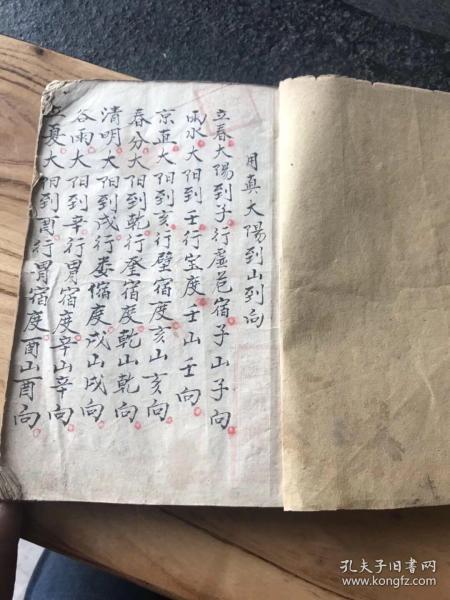 用真太陽到山到向
立春太陽到子行虛危宿子山子向
雨水太阳到壬行室度壬山壬向
京直太阳到亥行壁宿度亥山亥向
春分太阳到乾行奎宿度乾山乾向
清明太阳到戍行娄宿度戍山戍向
谷雨太阳到辛行胃宿度辛山辛向
立夏太阳到酉行胃宿度酉山酉向
孔夫子旧书网
www.kongfz.com